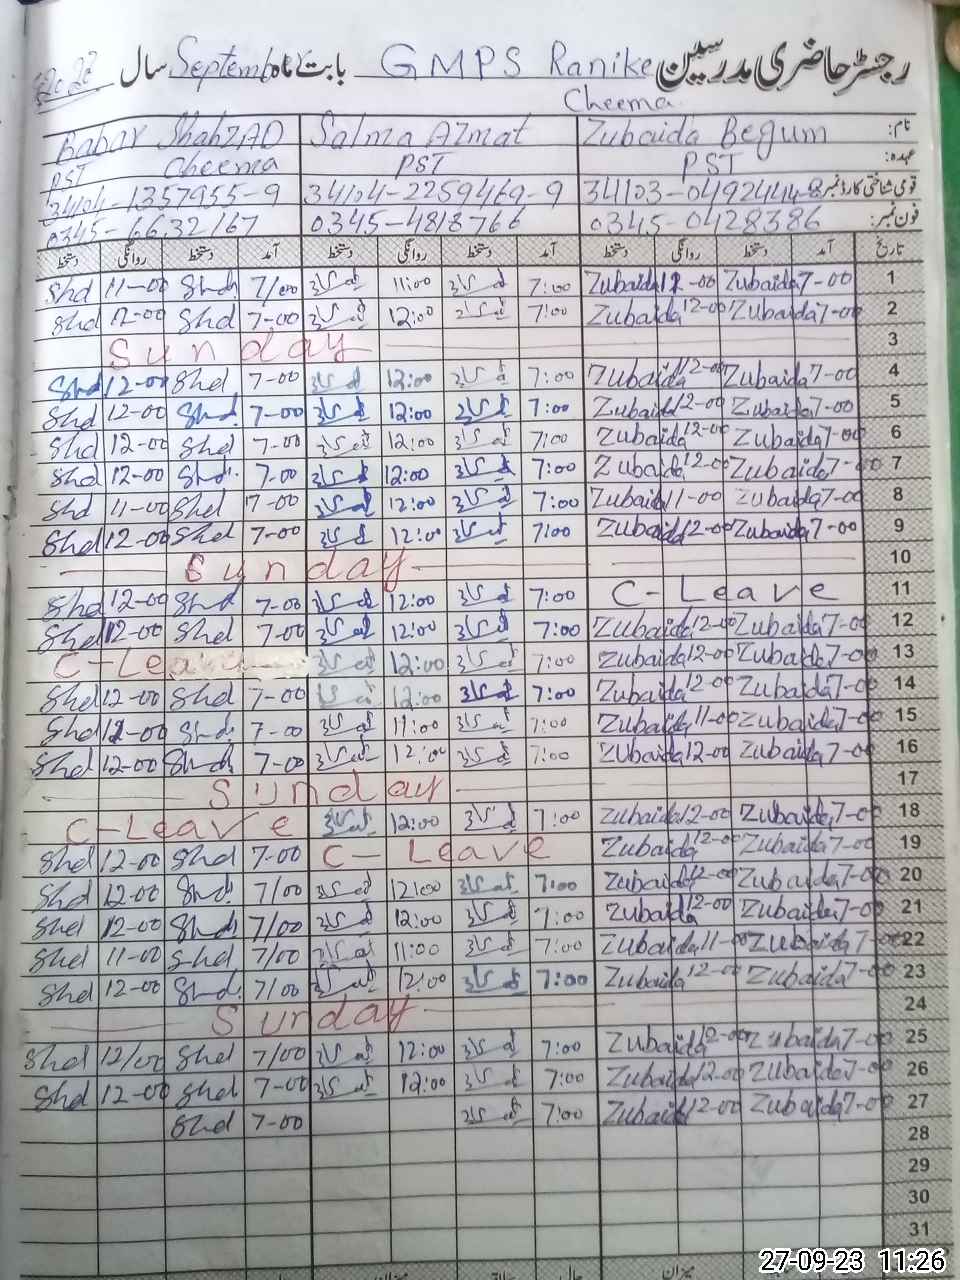 رجسٹر حاضری مدرسین GMPS Ranike بابت ماہ September سال
Cheema
نام: Zubaida Begum Salma Azmat Babar ShahzAD
عہدہ: PST PST PST Cheema
قومی شناختی کارڈ نمبر 34103-0492444-8 34104-2259469-9 34104-1357955-9
فون نمبر: 0345-0428386 0345-4818766 0345-6632167
تاریخ آمد دستخط روانگی دستخط آمد دستخط روانگی دستخط آمد دستخط روانگی دستخط
1 7-00 Zubaida 12-00 Zubaida 7:00 11:00 7/00 Shd 11-00 Shd
2 7-00 Zubaida 12-00 Zubaida 7:00 12:00 7-00 Shd 12-00 Shd
3 Sunday
4 7-00 Zubaida 12-00 Zubaida 7:00 12:00 7-00 Shd 12-00 Shd
5 7-00 Zubaida 12-00 Zubaida 7:00 12:00 7-00 Shd 12-00 Shd
6 7-00 Zubaida 12-00 Zubaida 7:00 12:00 7-00 Shd 12-00 Shd
7 7-00 Zubaida 12-00 Zubaida 7:00 12:00 7-00 Shd 12-00 Shd
8 7-00 Zubaida 11-00 Zubaida 7:00 12:00 7-00 Shd 11-00 Shd
9 7-00 Zubaida 12-00 Zubaida 7:00 12:00 7-00 Shd 12-00 Shd
10 Sunday
11 C-Leave 7:00 12:00 7-00 Shd 12-00 Shd
12 7-00 Zubaida 12-00 Zubaida 7:00 12:00 7-00 Shd 12-00 Shd
13 7-00 Zubaida 12-00 Zubaida 7:00 12:00 C-Leave
14 7-00 Zubaida 12-00 Zubaida 7:00 12:00 7-00 Shd 12-00 Shd
15 7-00 Zubaida 11-00 Zubaida 7:00 11:00 7-00 Shd Shd
16 7-00 Zubaida 12-00 Zubaida 7:00 12:00 7-00 Shd 12-00 Shd
17 Sunday
18 7-00 Zubaida 12-00 Zubaida 7:00 12:00 C-Leave
19 7-00 Zubaida 12-00 Zubaida C-Leave 7-00 Shd 12-00 Shd
20 7-00 Zubaida 12-00 Zubaida 7:00 12:00 7/00 Shd 12-00 Shd
21 7-00 Zubaida 12-00 Zubaida 7:00 12:00 7/00 Shd 12-00 Shd
22 7-00 Zubaida 11-00 Zubaida 7:00 11:00 7/00 Shd 11-00 Shd
23 7-00 Zubaida 12-00 Zubaida 7:00 12:00 7/00 Shd 12-00 Shd
24 Sunday
25 7-00 Zubaida 12-00 Zubaida 7:00 12:00 7/00 Shd 12/00 Shd
26 7-00 Zubaida 12-00 Zubaida 7:00 12:00 7-00 Shd 12-00 Shd
27 7-00 Zubaida 12-00 Zubaida 7:00 7-00 Shd
28
29
30
31
27-09-23 11:26